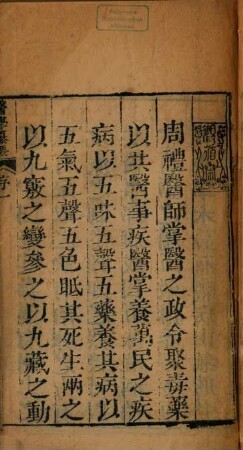 周禮醫師掌醫之政令聚毒藥
以共醫事疾醫掌養萬民之疾
病以五味五聲五藥養其病以
五氣五聲五色眡其死生兩之
以九竅之變參之以九藏之動